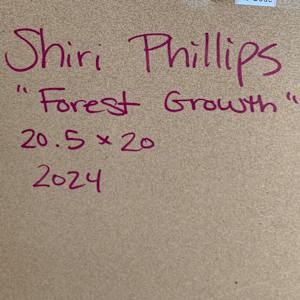 Shiri Phillips
"Forest Growth"
20.5 x 20
2024